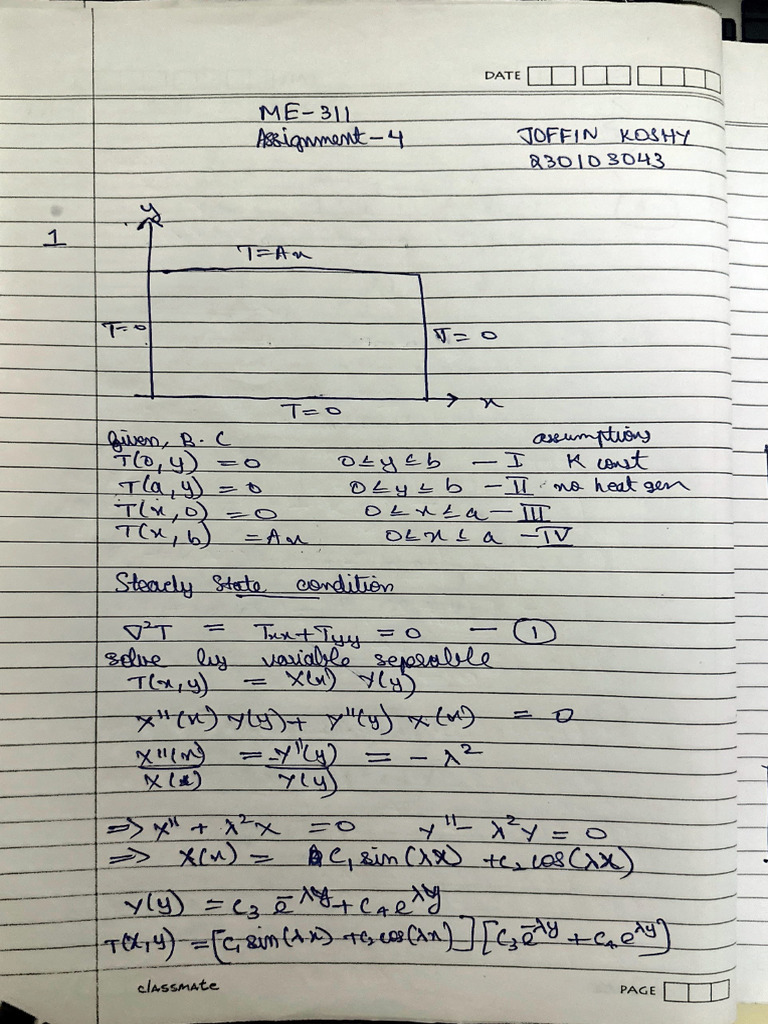 DATE
ME-311
Assignment-4
JOFFIN KOSHY
230103043
1
y
T=Ax
T=0
T=0
T=0
x
given, B.C
assumptions
T(0,y) =0 0≤y≤b — I K const
T(a,y) =0 0≤y≤b — II no heat gen
T(x,0) =0 0≤x≤a — III
T(x,b) =Ax 0≤x≤a — IV
Steady State condition
∇²T = Txx+Tyy =0 — ①
solve by variable seperable
T(x,y) = X(x) Y(y)
X''(x) Y(y)+ Y''(y) X(x) = 0
X''(x)/X(x) = -Y''(y)/Y(y) = -λ²
⇒ X'' + λ²X =0 Y''- λ²Y = 0
⇒ X(x) = C₁sin(λx) +C₂ cos(λx)
Y(y) = C₃ e^-λy + C₄e^λy
T(x,y) =[C₁ sin(λx) +C₂ cos(λx)] [C₃e^-λy + C₄ e^λy]
classmate
PAGE